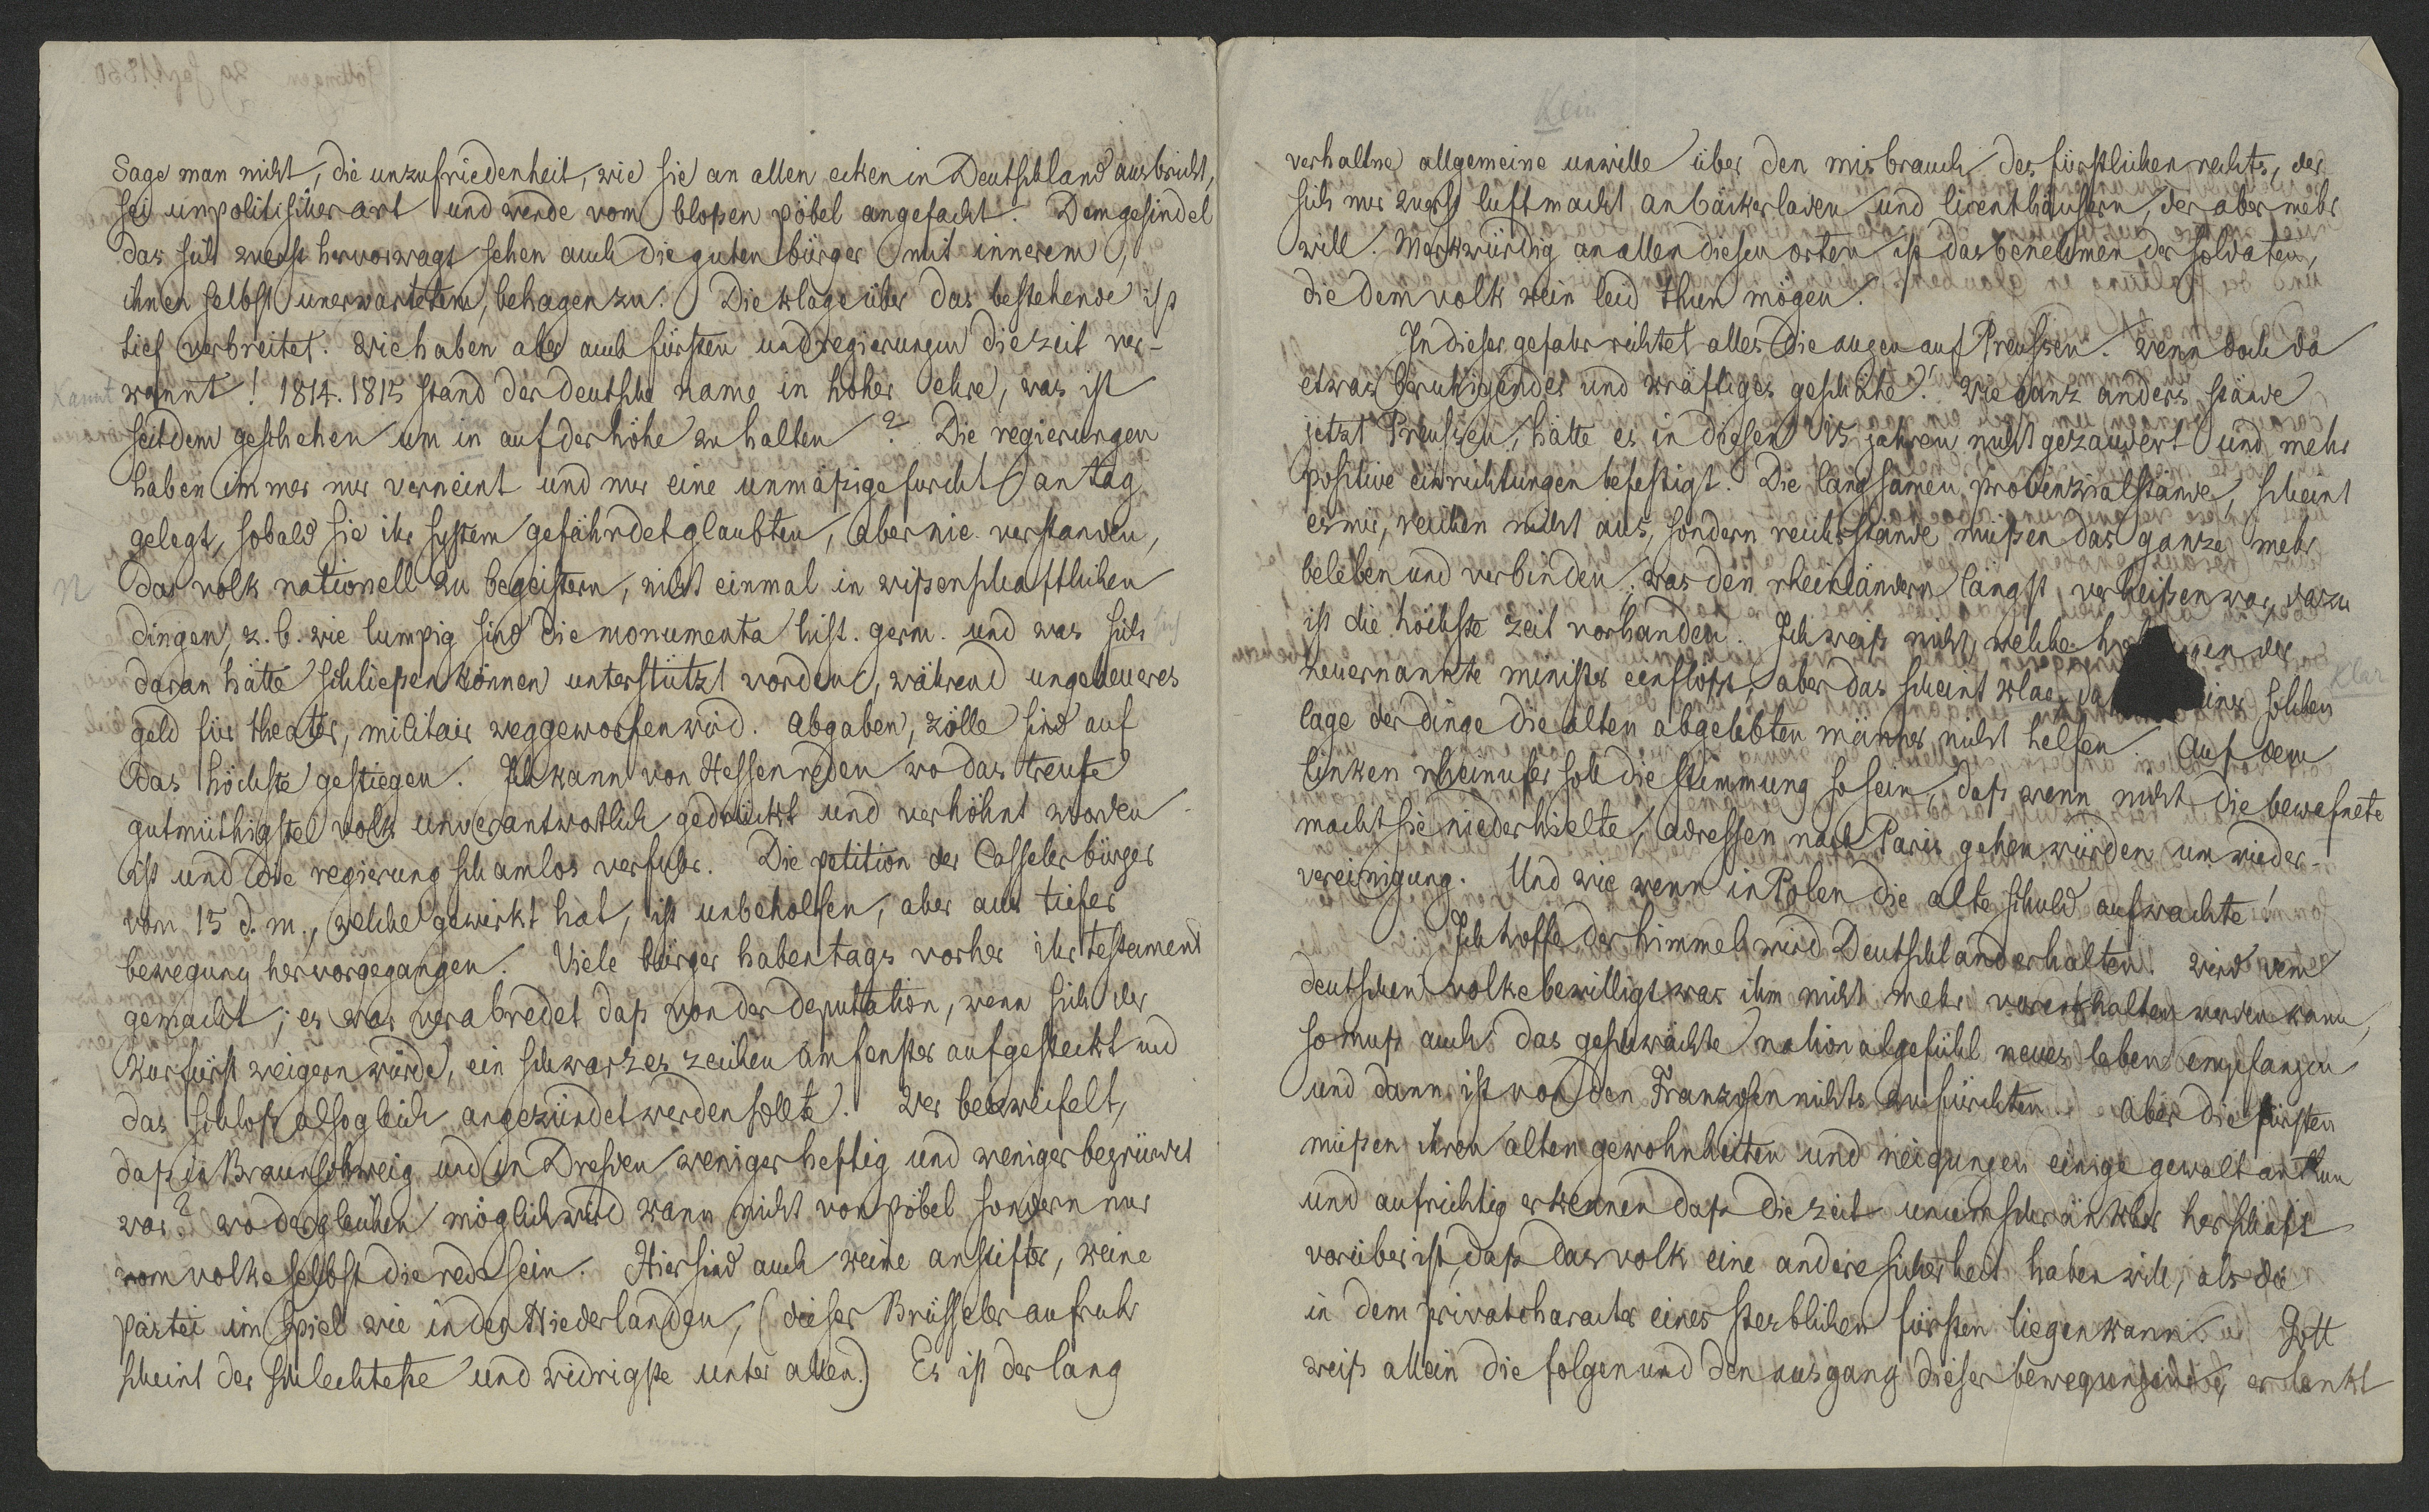 Sage man nicht, die unzufriedenheit, wie sie an allen ecken in Deutschland ausbricht,
sei unpolitischer art und werde vom bloßen pöbel angefacht. Dem gesindel
das sich zuerst hervorwagt sehen auch die guten bürger mit innerem,
ihnen selbst unerwartetem, behagen zu. Die klage über das bestehende ist
tief verbreitet. Wie haben aber auch fürsten und regierungen die zeit ver-
kannt! 1814. 1815 stand der deutsche name in hoher ehre, was ist
seitdem geschehen um in auf der höhe zu halten? Die regierungen
haben immer nur verneint und nur eine unmäßige furcht an tag
gelegt, sobald sie ihr system gefährdet glaubten, aber nie verstanden,
das volk nationell zu begeistern, nicht einmal in wißenschaftlichen
dingen, z. b. wie lumpig sind die monumenta hist. germ. und was sich
daran hätte schließen können unterstützt worden, während ungeheueres
geld für theater, militair weggeworfen wird. Abgaben, zölle sind auf
das höchste gestiegen. Ich kann von Hessen reden wo das treuste
gutmüthigste volk unverantwortlich gedrückt und verhöhnt worden
ist und die regierung schamlos verfuhr. Die petition der Casseler bürger
vom 15 d. m., welche gewirkt hat, ist unbeholfen, aber aus tiefer
bewegung hervorgegangen. Viele bürger haben tags vorher ihr testament
gemacht; es war verabredet daß von der deputation, wenn sich der
Kurfürst weigern würde, ein schwarzes zeichen am fenster aufgesteckt und
das schloß alsogleich angezündet werden sollte. Wer bezweifelt,
daß in Braunschweig und in Dresden weniger heftig und weniger begründet
war? wo dergleichen möglich wird kann nicht von pöbel sondern nur
vom volke selbst die rede sein. Hier sind auch keine anstifter, keine
partei im spiel wie in den Niederlanden, (dieser Brüsseler aufruhr
scheint der schlechteste und widrigste unter allen.) Es ist der lang
verhaltne allgemeine unwille über den misbrauch des fürstlichen rechts, der
sich nur zuerst luft macht an bäckerladen und licenthäusern, der aber mehr
will. Merkwürdig an allen diesen orten ist das benehmen der soldaten,
die dem volk kein leid thun mögen.
In dieser gefahr richtet alles die augen auf Preussen. Wenn doch da
etwas beruhigendes und kräftiges geschähe! Wie ganz anders stände
jetzt Preussen, hätte es in diesen 15 jahren nicht gezaudert und mehr
positive einrichtungen befestigt. Die langsamen provinzialstände, scheint
es mir, reichen nicht aus, sondern reichsstände müßen das ganze mehr
beleben und verbinden; was den rheinländern längst verheißen war, dazu
ist die höchste zeit vorhanden. Ich weiß nicht, welche der
neuernannte minister einflößt, aber das scheint klar, solchen
lage der dinge die alten abgelebten männer nicht helfen. Auf dem
linken rheinufer soll die stimmung so sein, daß wenn nicht die bewafnete
macht sie niederhielte, adressen nach Paris gehen würden um wieder-
vereinigung. Und wie wenn in Polen die alte schuld aufwachte!
Ich hoffe der himmel wird Deutschland erhalten. Wird dem
deutschen volke bewilligt was ihm nicht mehr vorenthalten werden kann,
so muß auch das geschwächte nationalgefühl neues leben empfangen
und dann ist von den Franzosen nichts zu fürchten. Aber die fürsten
müßen ihren alten gewohnheiten und neigungen einige gewalt anthun
und aufrichtig erkennen daß die zeit unumschränkter herschaft
vorüber ist, daß das volk eine andere sicherheit haben will, als die
in dem privatcharacter eines sterblichen fürsten liegen kann. Gott
weiß allein die folgen und den ausgang dieser bewegungen, er lenkt
Kannt
n
sich
Kein
Klar